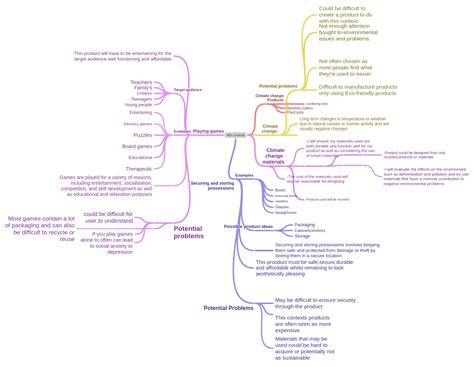 Could be difficult to
create a product to do
with this context
Not enough attention
bought to environmental
issues and problems
Not often chosen as
most people find what
they're used to easier
Difficult to manufacture products
only using Eco-friendly products
Potential problems
Climate change-
Products
Gardening tools
Bamboo cutlery
Plant pots
Climate
change-
Long term changes to temperature or weather
due to natural causes or human activity and are
usually negative changes
Climate
change-
materials
I will ensure my materials used are
both durable and function well for my
product as well as considering the use
of smart materials
Product could be designed from only
recycled products or materials
I will evaluate the effects on the environment
such as deforestation and pollution and try use
materials that have a minimal contribution to
negative environmental problems
The cost of the materials used will
also be reasonable for designing
Products used will be recycled
This product will have to be entertaining for the
target audience well functioning and affordable
Target audience
Teachers
Family's
Children
Teenagers
Young people
Playing games
Examples
Entertaining
Sensory games
Puzzles
Board games
Educational
Therapeutic
Games are played for a variety of reasons,
including entertainment, socialisation,
competition, and skill development as well as
educational and relaxation purposes
Potential
problems
could be difficult for
user to understand
If you play games
alone to often can lead
to social anxiety or
depression
Most games contain a lot
of packaging and can also
be difficult to recycle or
reuse
Securing and storing
possessions
Examples
Books
Jewellery
Glasses
Headphones
Possible product ideas
Packaging
Cabinets/shelves
Storage
Securing and storing possessions involves keeping
them safe and protected from damage or theft by
storing them in a secure location
This prooduct must be safe,secure,durable
and affordable whilst remaining to look
aesthetically pleasing
Potential Problems
May be difficult to ensure security
through the product
This contexts products
are often seen as more
expensive
Materials that may be
used could be hard to
acquire or potentially not
as sustainable